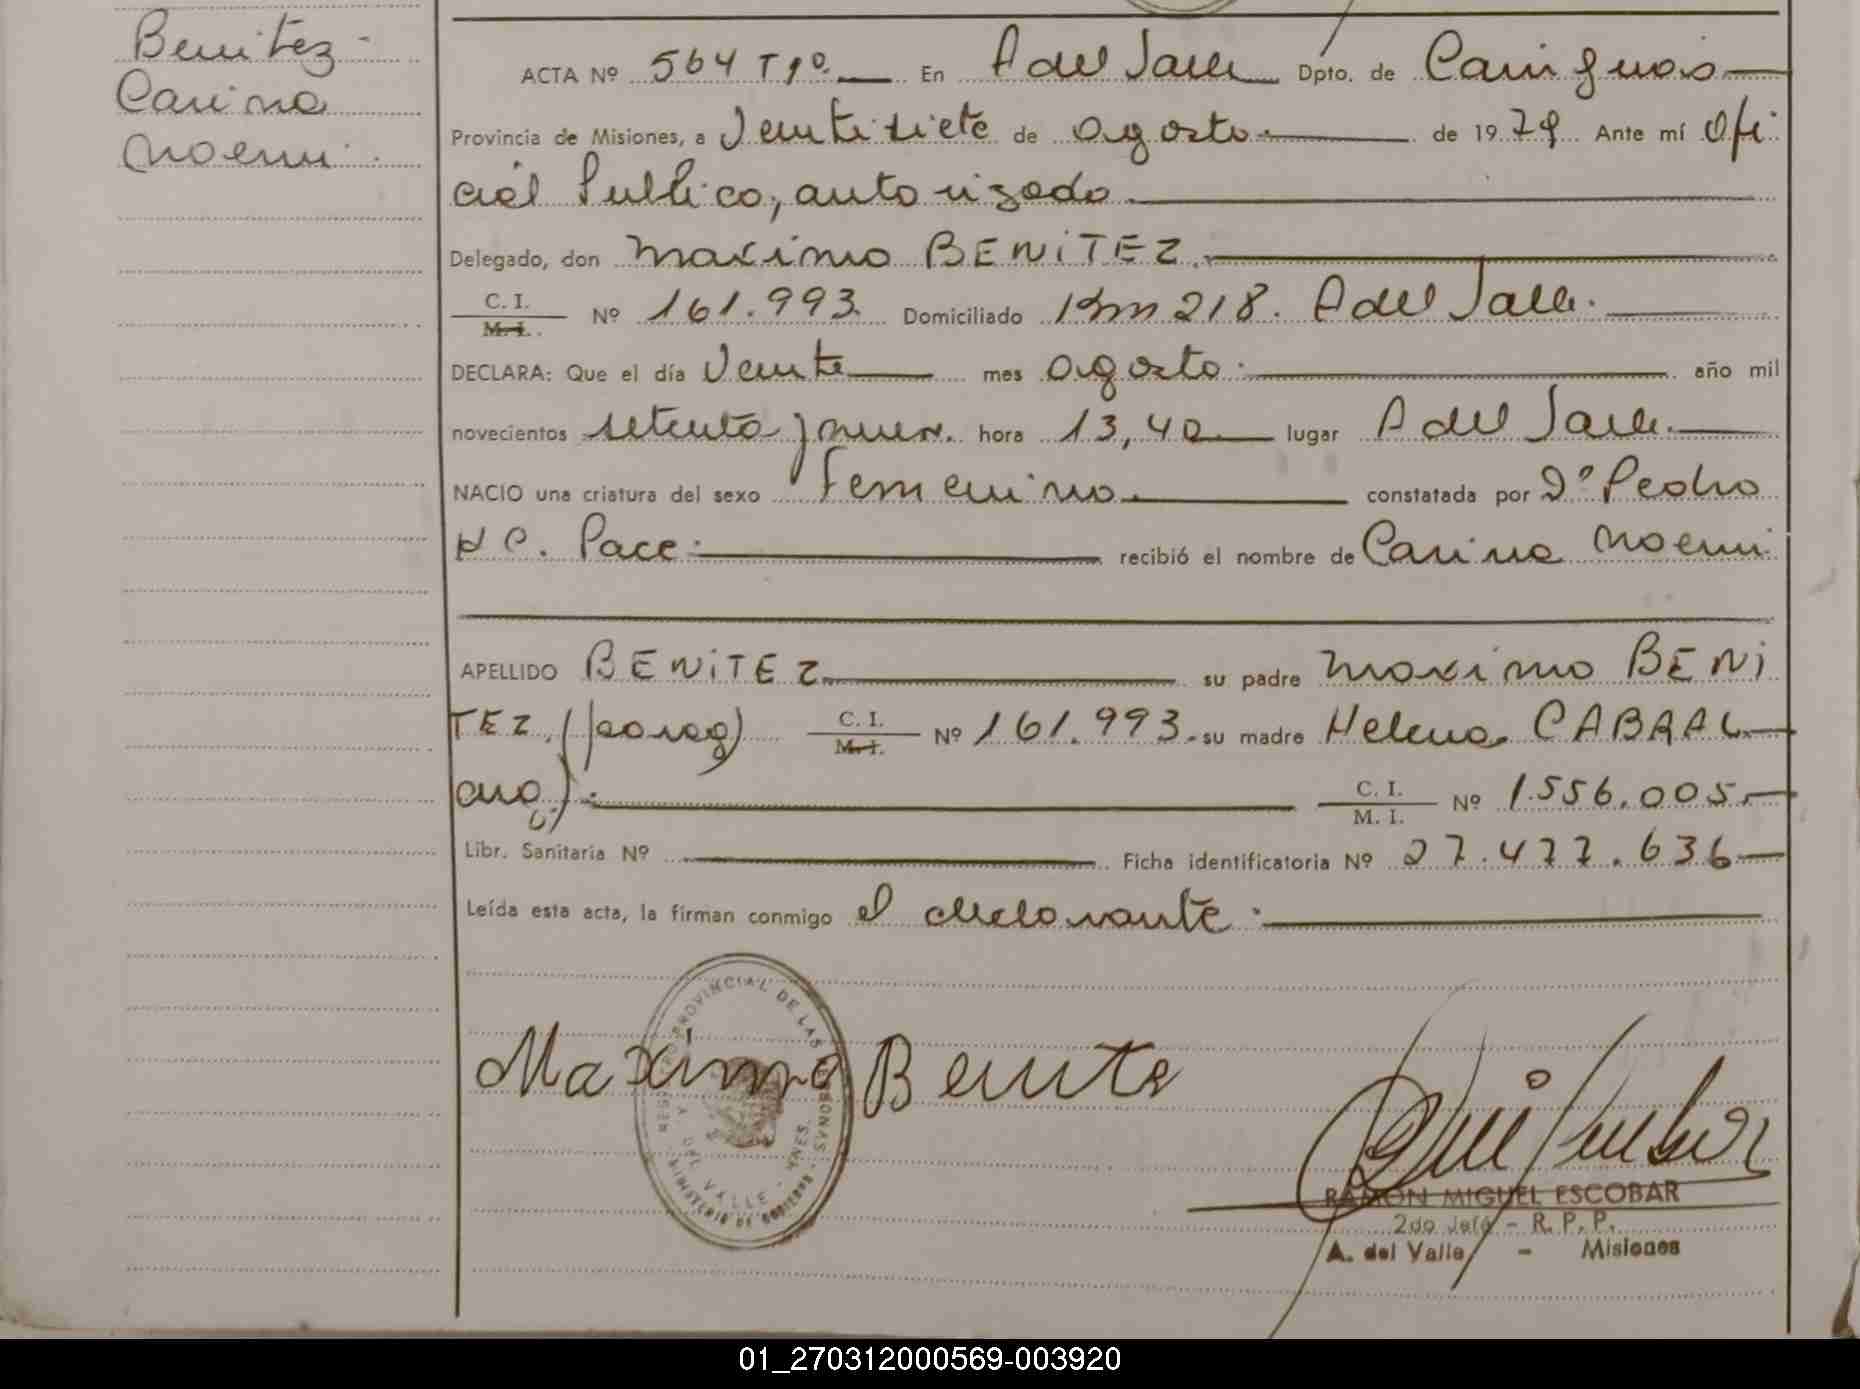 Benitez -
Carina
Noemi.
ACTA Nº 564 Tº 1º. En A del Valle Dpto. de Cainguas
Provincia de Misiones, a Veintisiete de agosto. de 1979 Ante mí Ofi
cial Publico, autorizado
Delegado, don Maximo BENiTEZ.
C. I.
M. I.
Nº 161.993. Domiciliado Km 218. A del Valle.
DECLARA: Que el día Veinte mes agosto. año mil
novecientos setenta y nueve. hora 13,40 lugar A del Valle.
NACIO una criatura del sexo femenino constatada por Dº Pedro
H C. Pace. recibió el nombre de Carina Noemi
APELLIDO BENiTEZ su padre Maximo BENi
TEZ, (parag)
C. I.
M. I.
Nº 161.993. su madre Helena CABRAL
arg.)
C. I.
M. I.
Nº 1.556.005.
Libr. Sanitaria Nº Ficha identificatoria Nº 27.477.636
Leída esta acta, la firman conmigo el declarante.
Maximo Benite
REGISTRO PROVINCIAL DE LAS PERSONAS
A. DEL VALLE - MNES.
MINISTERIO DE GOBIERNO
RAMON MIGUEL ESCOBAR
2do Jefe - R. P. P.
A. del Valle - Misiones
01_270312000569-003920